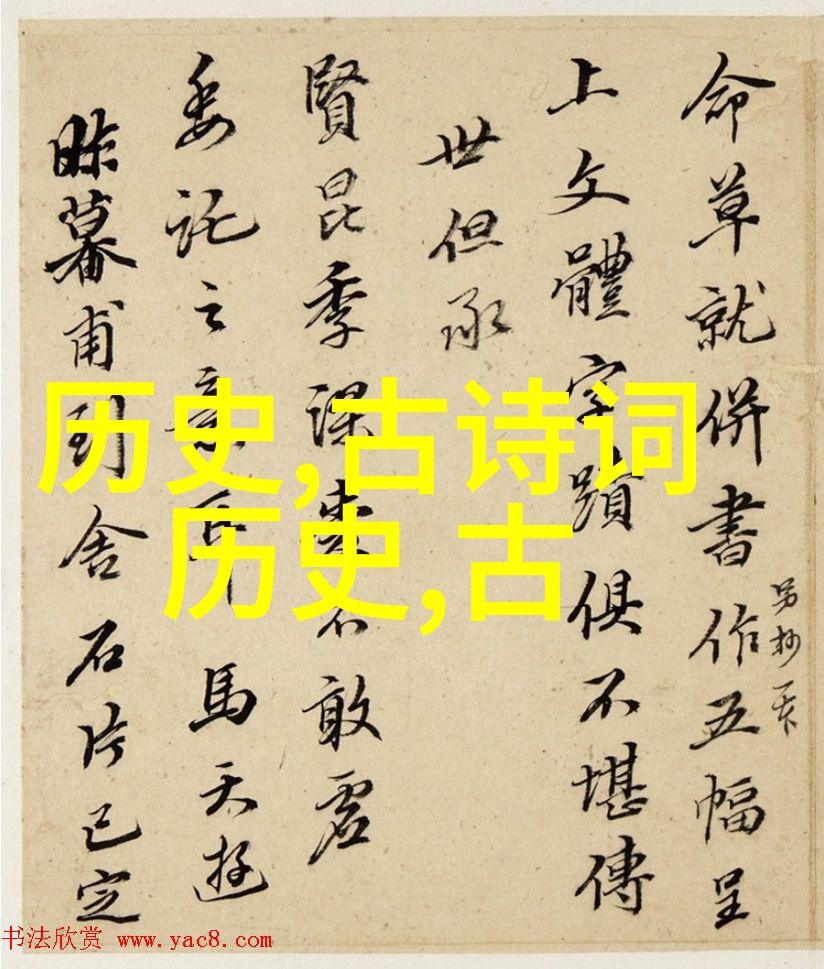 命草就併書作五幅呈
另抄一本
上文體字蹟俱不堪傳
世但承
賢昆季課來不敢虛
委託之意耳馬天游
昨暮甫到舍石片已定
历史,古诗词
历史,古
书法欣赏 www.yac8.com